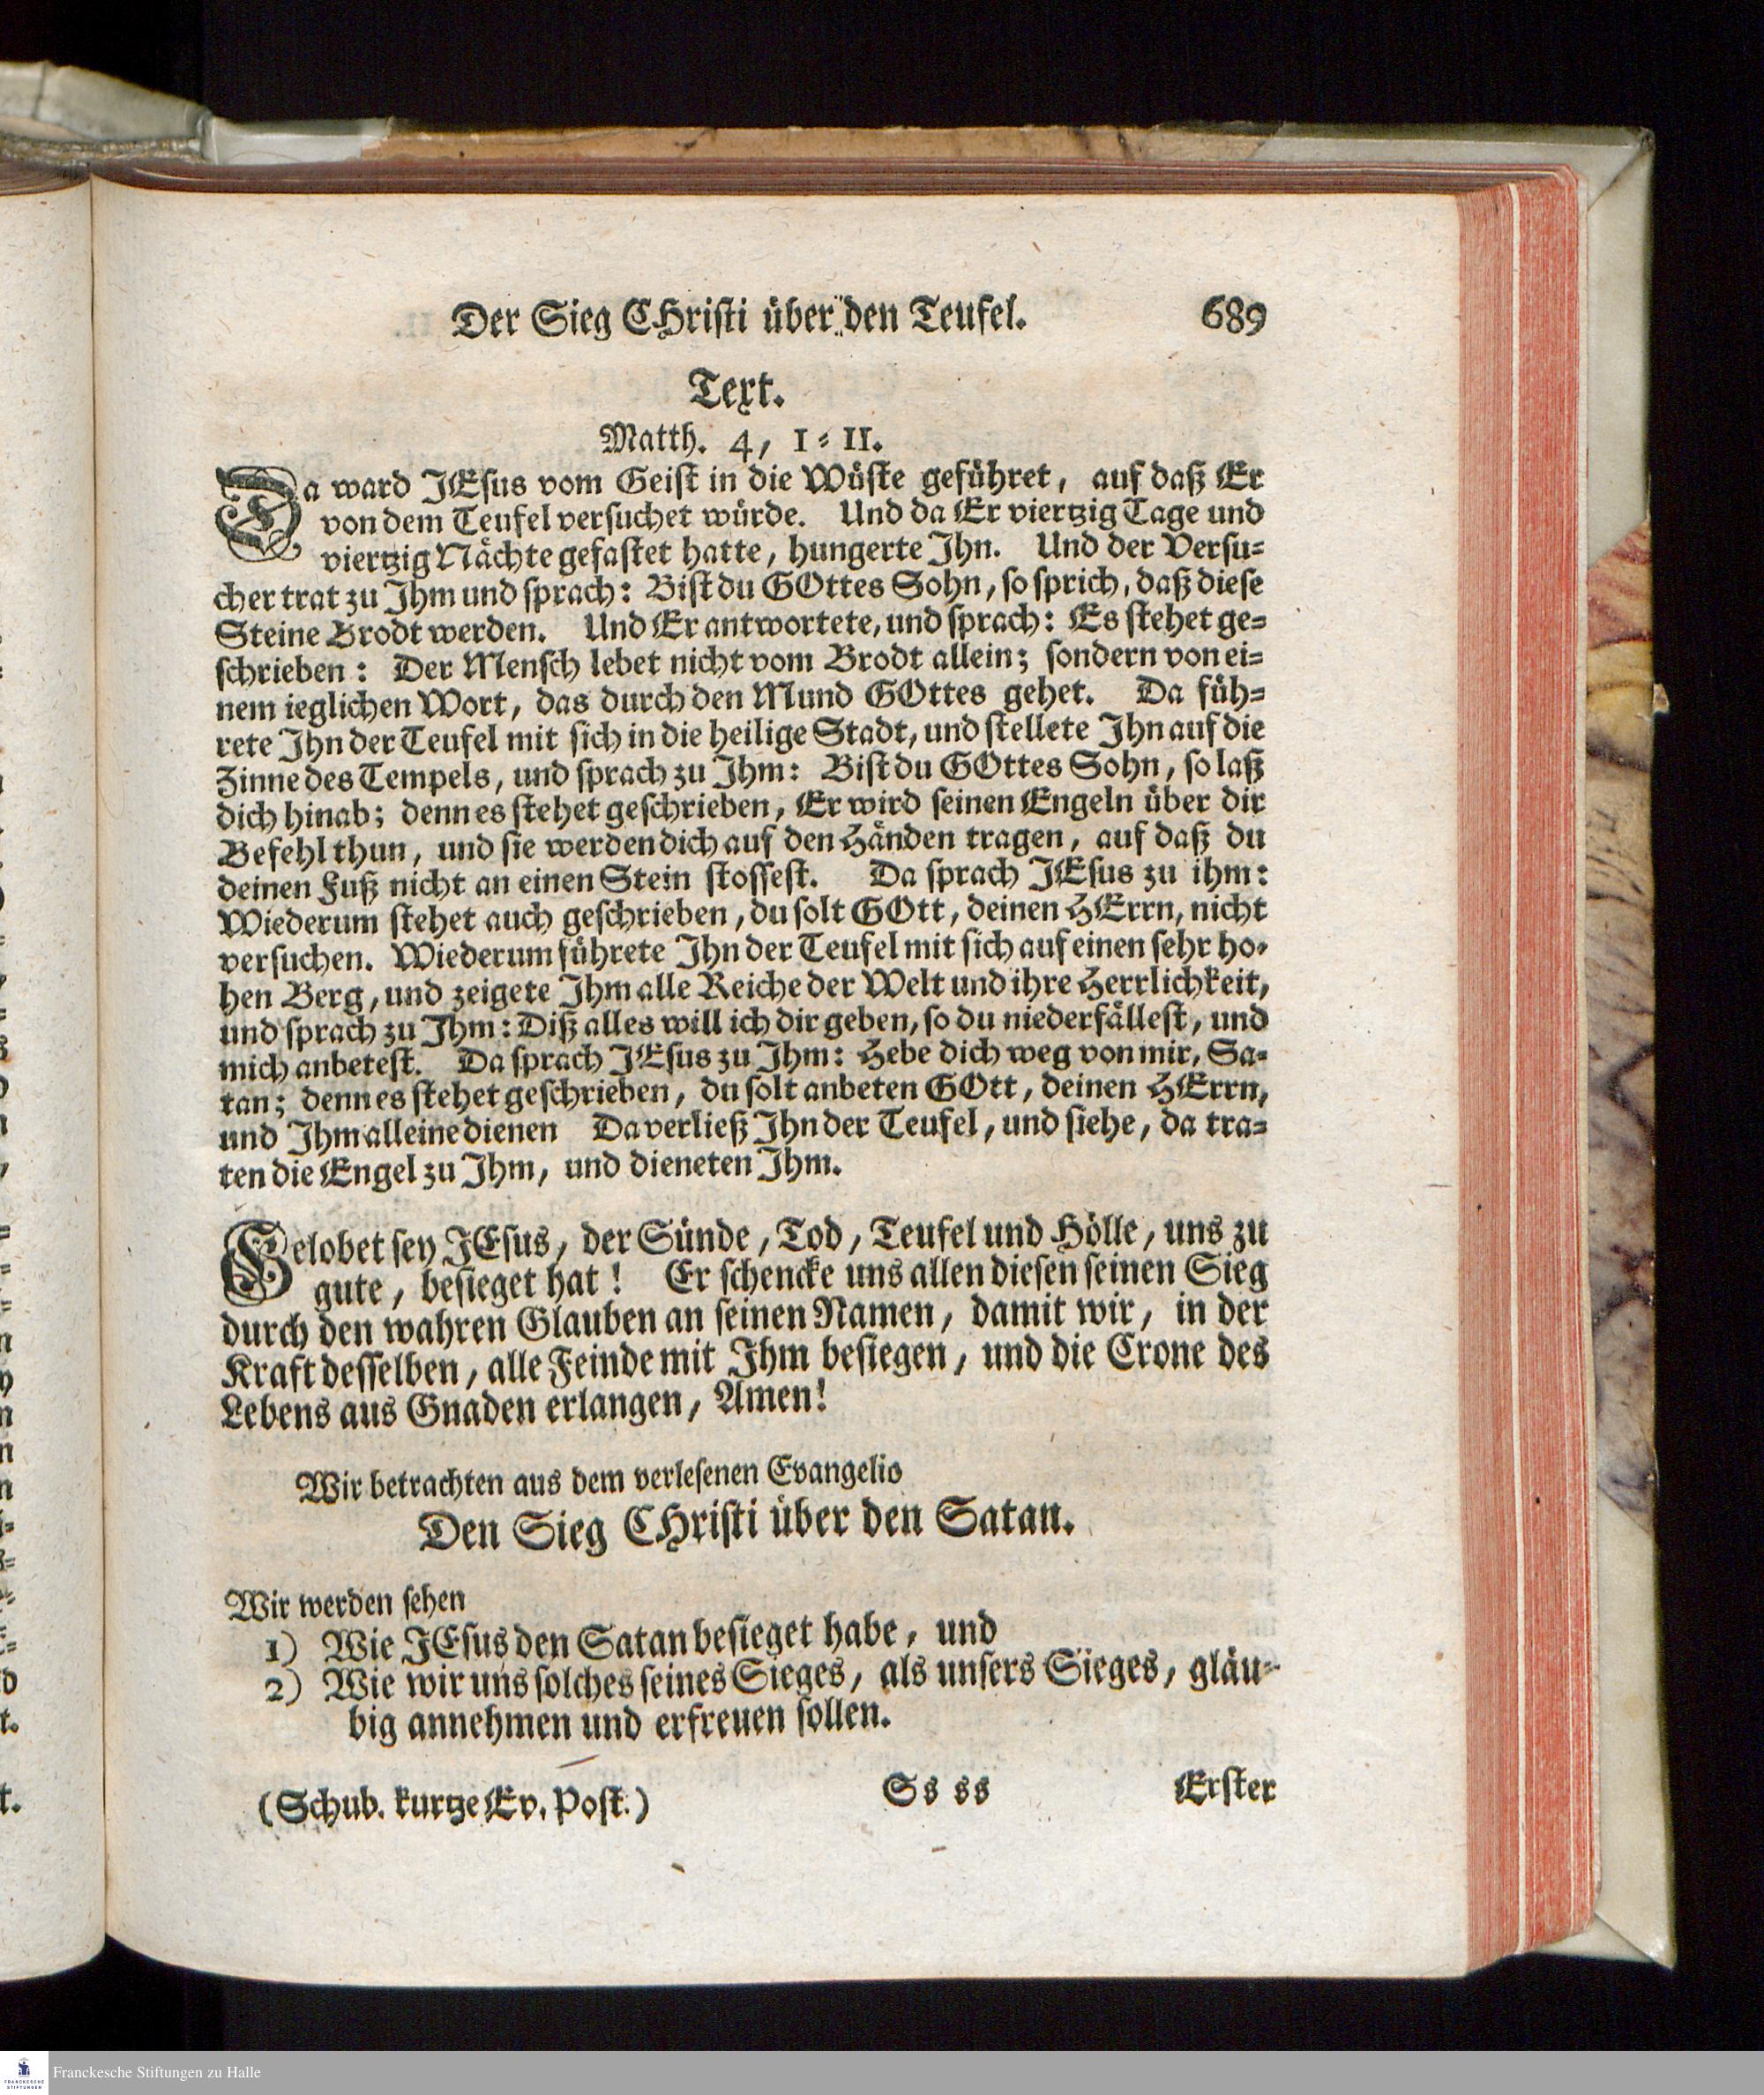 Der Sieg CHristi über den Teufel. 689
Text.
Matth. 4, 1=11.
Da ward JEsus vom Geist in die Wüste geführet, auf daß Er
von dem Teufel versuchet würde. Und da Er viertzig Tage und
viertzig Nächte gefastet hatte, hungerte Jhn. Und der Versu=
cher trat zu Jhm und sprach: Bist du GOttes Sohn, so sprich, daß diese
Steine Brodt werden. Und Er antwortete, und sprach: Es stehet ge=
schrieben: Der Mensch lebet nicht vom Brodt allein; sondern von ei=
nem ieglichen Wort, das durch den Mund GOttes gehet. Da füh=
rete Jhn der Teufel mit sich in die heilige Stadt, und stellete Jhn auf die
Zinne des Tempels, und sprach zu Jhm: Bist du GOttes Sohn, so laß
dich hinab; denn es stehet geschrieben, Er wird seinen Engeln über dir
Befehl thun, und sie werden dich auf den Händen tragen, auf daß du
deinen Fuß nicht an einen Stein stossest. Da sprach JEsus zu ihm:
Wiederum stehet auch geschrieben, du solt GOtt, deinen HErrn, nicht
versuchen. Wiederum führete Jhn der Teufel mit sich auf einen sehr ho=
hen Berg, und zeigete Jhm alle Reiche der Welt und ihre Herrlichkeit,
und sprach zu Jhm: Diß alles will ich dir geben, so du niederfällest, und
mich anbetest. Da sprach JEsus zu Jhm: Hebe dich weg von mir, Sa=
tan; denn es stehet geschrieben, du solt anbeten GOtt, deinen HErrn,
und Jhm alleine dienen Da verließ Jhn der Teufel, und siehe, da tra=
ten die Engel zu Jhm, und dieneten Jhm.
Gelobet sey JEsus, der Sünde, Tod, Teufel und Hölle, uns zu
gute, besieget hat! Er schencke uns allen diesen seinen Sieg
durch den wahren Glauben an seinen Namen, damit wir, in der
Kraft desselben, alle Feinde mit Jhm besiegen, und die Crone des
Lebens aus Gnaden erlangen, Amen!
Wir betrachten aus dem verlesenen Evangelio
Den Sieg CHristi über den Satan.
Wir werden sehen
1) Wie JEsus den Satan besieget habe, und
2) Wie wir uns solches seines Sieges, als unsers Sieges, gläu=
big annehmen und erfreuen sollen.
(Schub. kurtze Ev. Post.) Ss ss Erster
Franckesche Stiftungen zu Halle
FRANCKESCHE
STIFTUNGEN